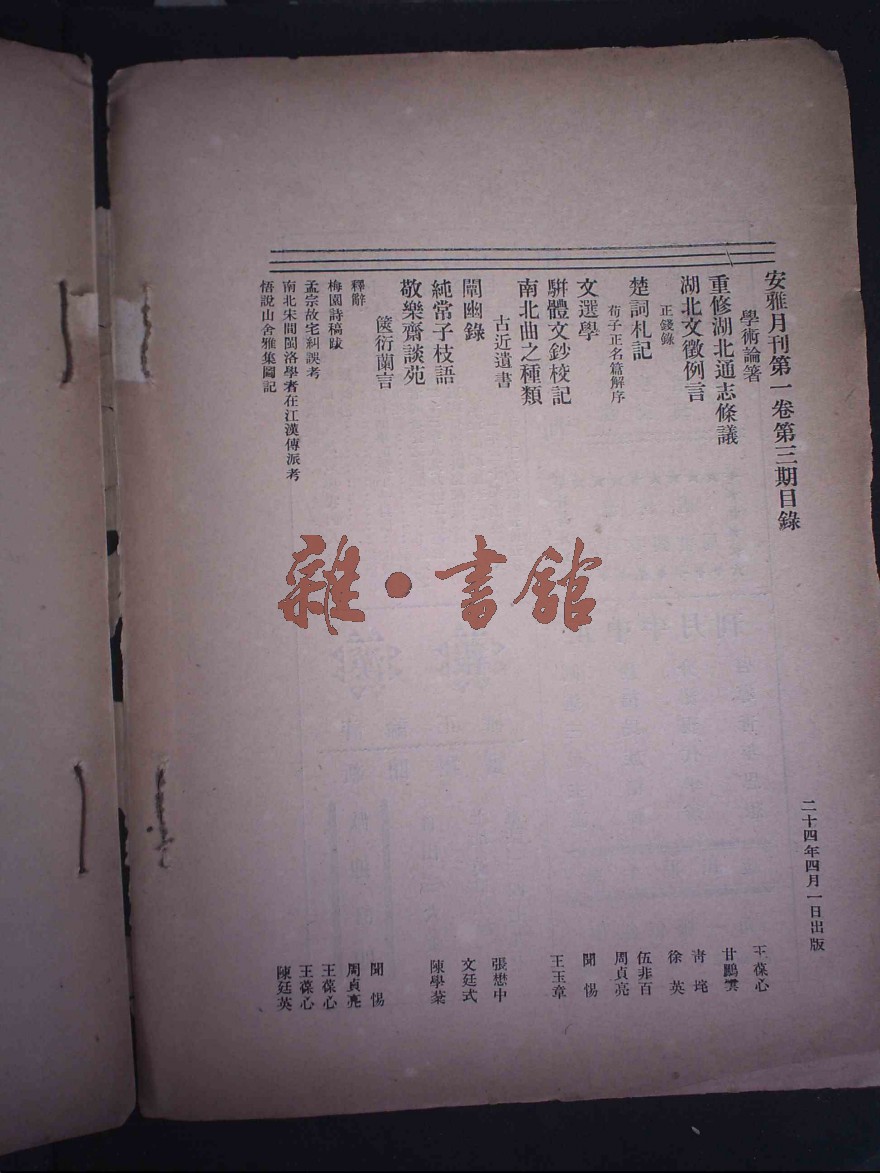 安雅月刊第一卷第三期目錄
二十四年四月一日出版
學術論著
重修湖北通志條議
王葆心
湖北文徵例言
甘鵬雲
正錢錄
青垞
楚詞札記
徐英
荀子正名篇解序
伍非百
文選學
周貞亮
駢體文鈔校記
聞惕
南北曲之種類
王玉章
古近遺書
闡幽錄
張懋中
純常子枝語
文廷式
敬樂齋談苑
陳學棻
篋衍蘭言
釋辭
聞惕
梅園詩稿跋
周貞亮
孟宗故宅糾誤考
王葆心
南北宋間閩洛學者在江漢傳派考
王葆心
悟說山舍雅集圖記
陳廷英
雜·書館